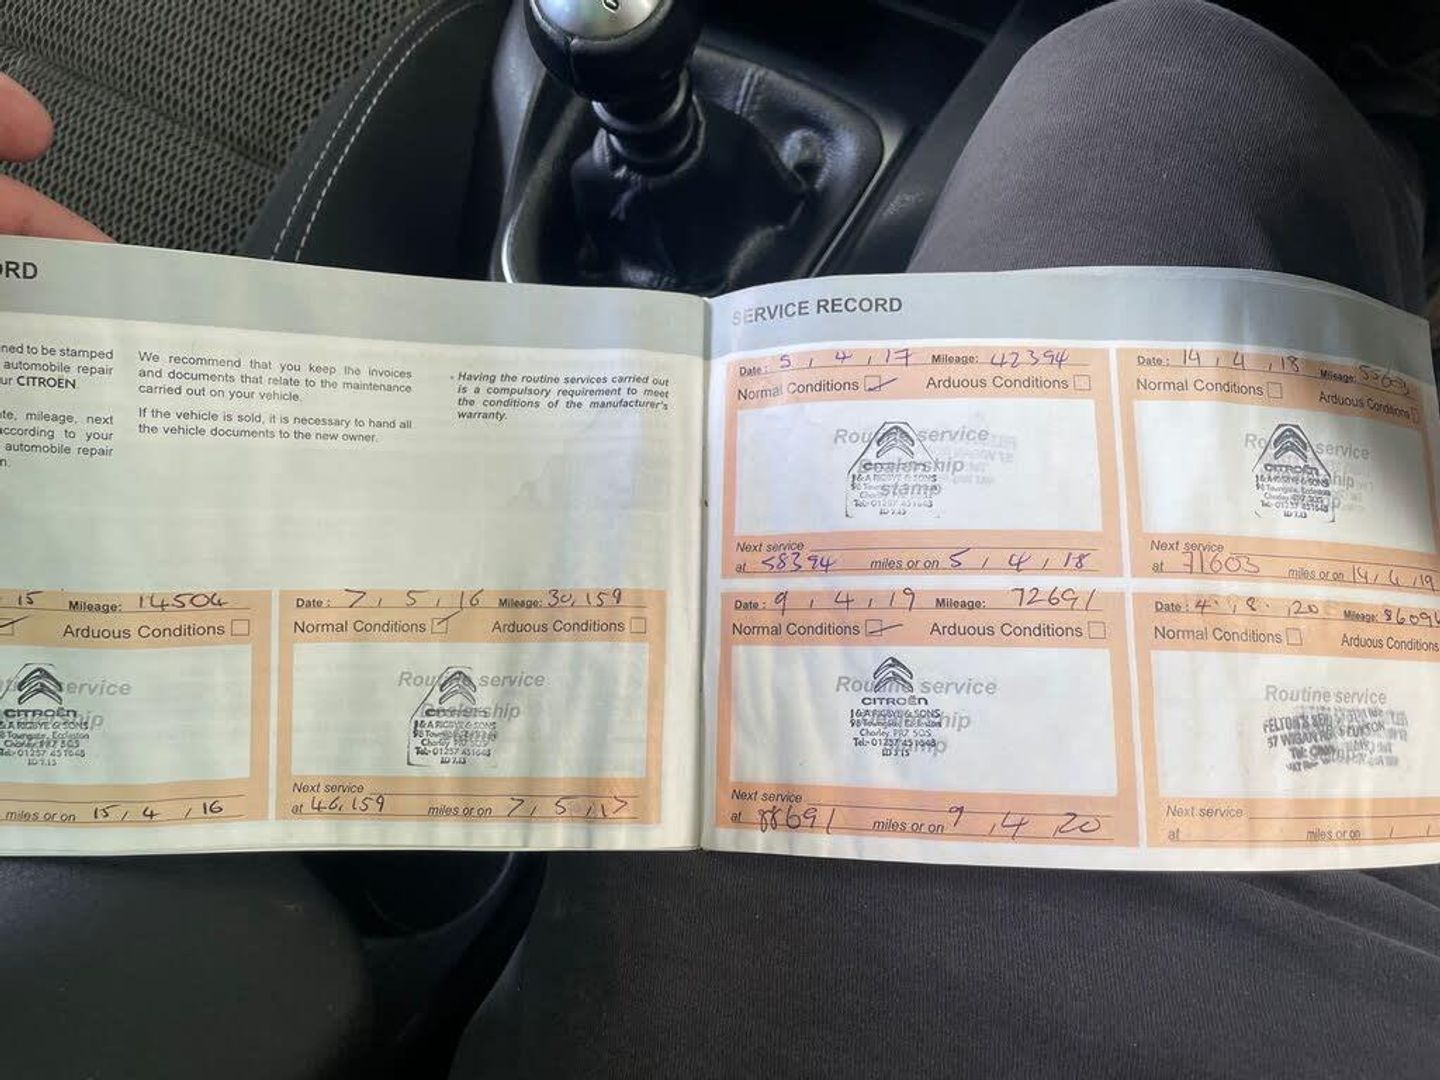 ORD
ned to be stamped
automobile repair
ur CITROËN
te, mileage, next
according to your
automobile repair
n.
We recommend that you keep the invoices
and documents that relate to the maintenance
carried out on your vehicle.
If the vehicle is sold, it is necessary to hand all
the vehicle documents to the new owner.
Having the routine services carried out
is a compulsory requirement to meet
the conditions of the manufacturer's
warranty.
15 Mileage: 14504
Arduous Conditions
service
CITROËN
J & A RIGBYE & SONS
98 Towngate, Eccleston
Chorley PR7 5QS
Tel:- 01257 451648
miles or on 15 / 4 / 16
Date: 7 / 5 / 16 Mileage: 30,159
Normal Conditions Arduous Conditions
Routine service
Dealership
J & A RIGBYE & SONS
98 Towngate, Eccleston
Chorley PR7 5QS
Tel:- 01257 451648
Next service
at 46,159 miles or on 7 / 5 / 17
SERVICE RECORD
Date: 5 / 4 / 17 Mileage: 42394
Normal Conditions Arduous Conditions
Routine service
Dealership
stamp
J & A RIGBYE & SONS
Tel:- 01257 451648
Next service
at 58394 miles or on 5 / 4 / 18
Date: 14 / 4 / 18 Mileage: 55603
Normal Conditions Arduous Conditions
service
CITROËN
J & A RIGBYE & SONS
98 Towngate, Eccleston
Chorley PR7 5QS
Tel:- 01257 451648
Next service
at 71603 miles or on 14 / 4 / 19
Date: 9 / 4 / 19 Mileage: 72691
Normal Conditions Arduous Conditions
Routine service
CITROËN
J & A RIGBYE & SONS
98 Towngate, Eccleston
Chorley PR7 5QS
Tel:- 01257 451648
Next service
at 88691 miles or on 9 / 4 / 20
Date: 4 / 8 / 20 Mileage: 8609
Normal Conditions Arduous Conditions
Routine service
57 WIGAN
Next service
at miles or on / /